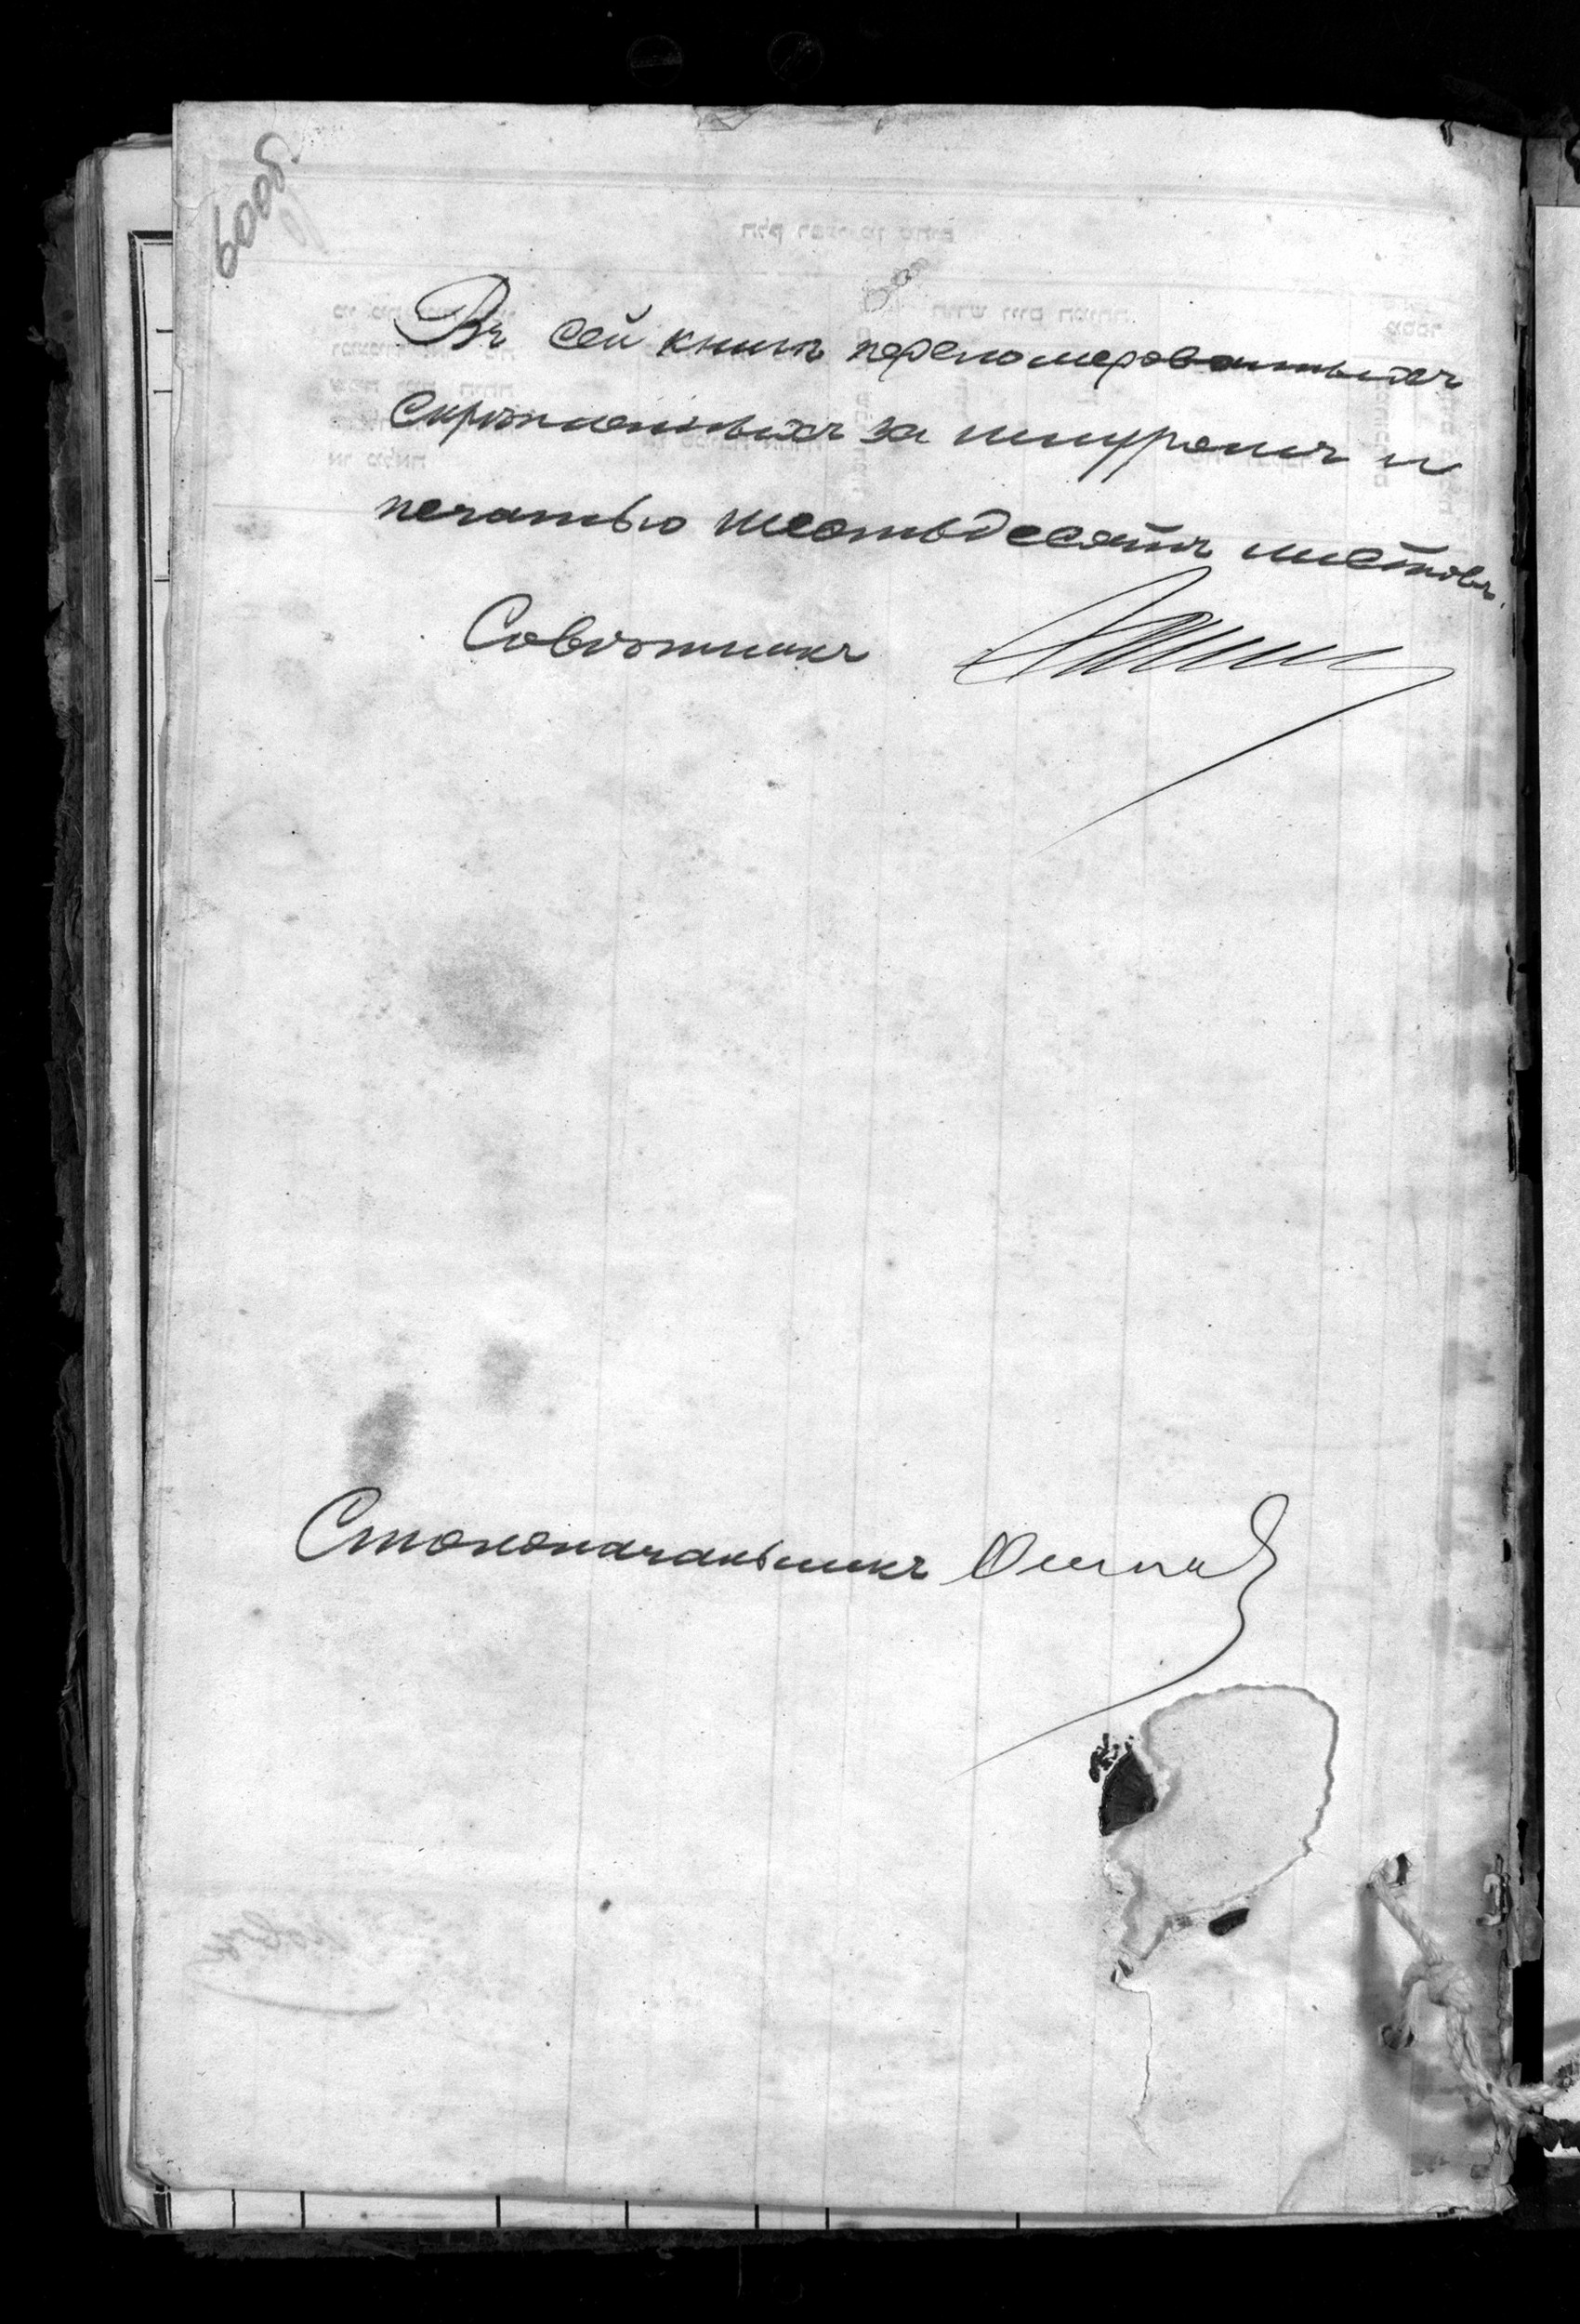 60об.
Въ сей книгѣ перенумерованныхъ
скрѣпленныхъ за шнуромъ и
печатью шестьдесятъ листовъ.
Совѣтникъ
Столоначальникъ